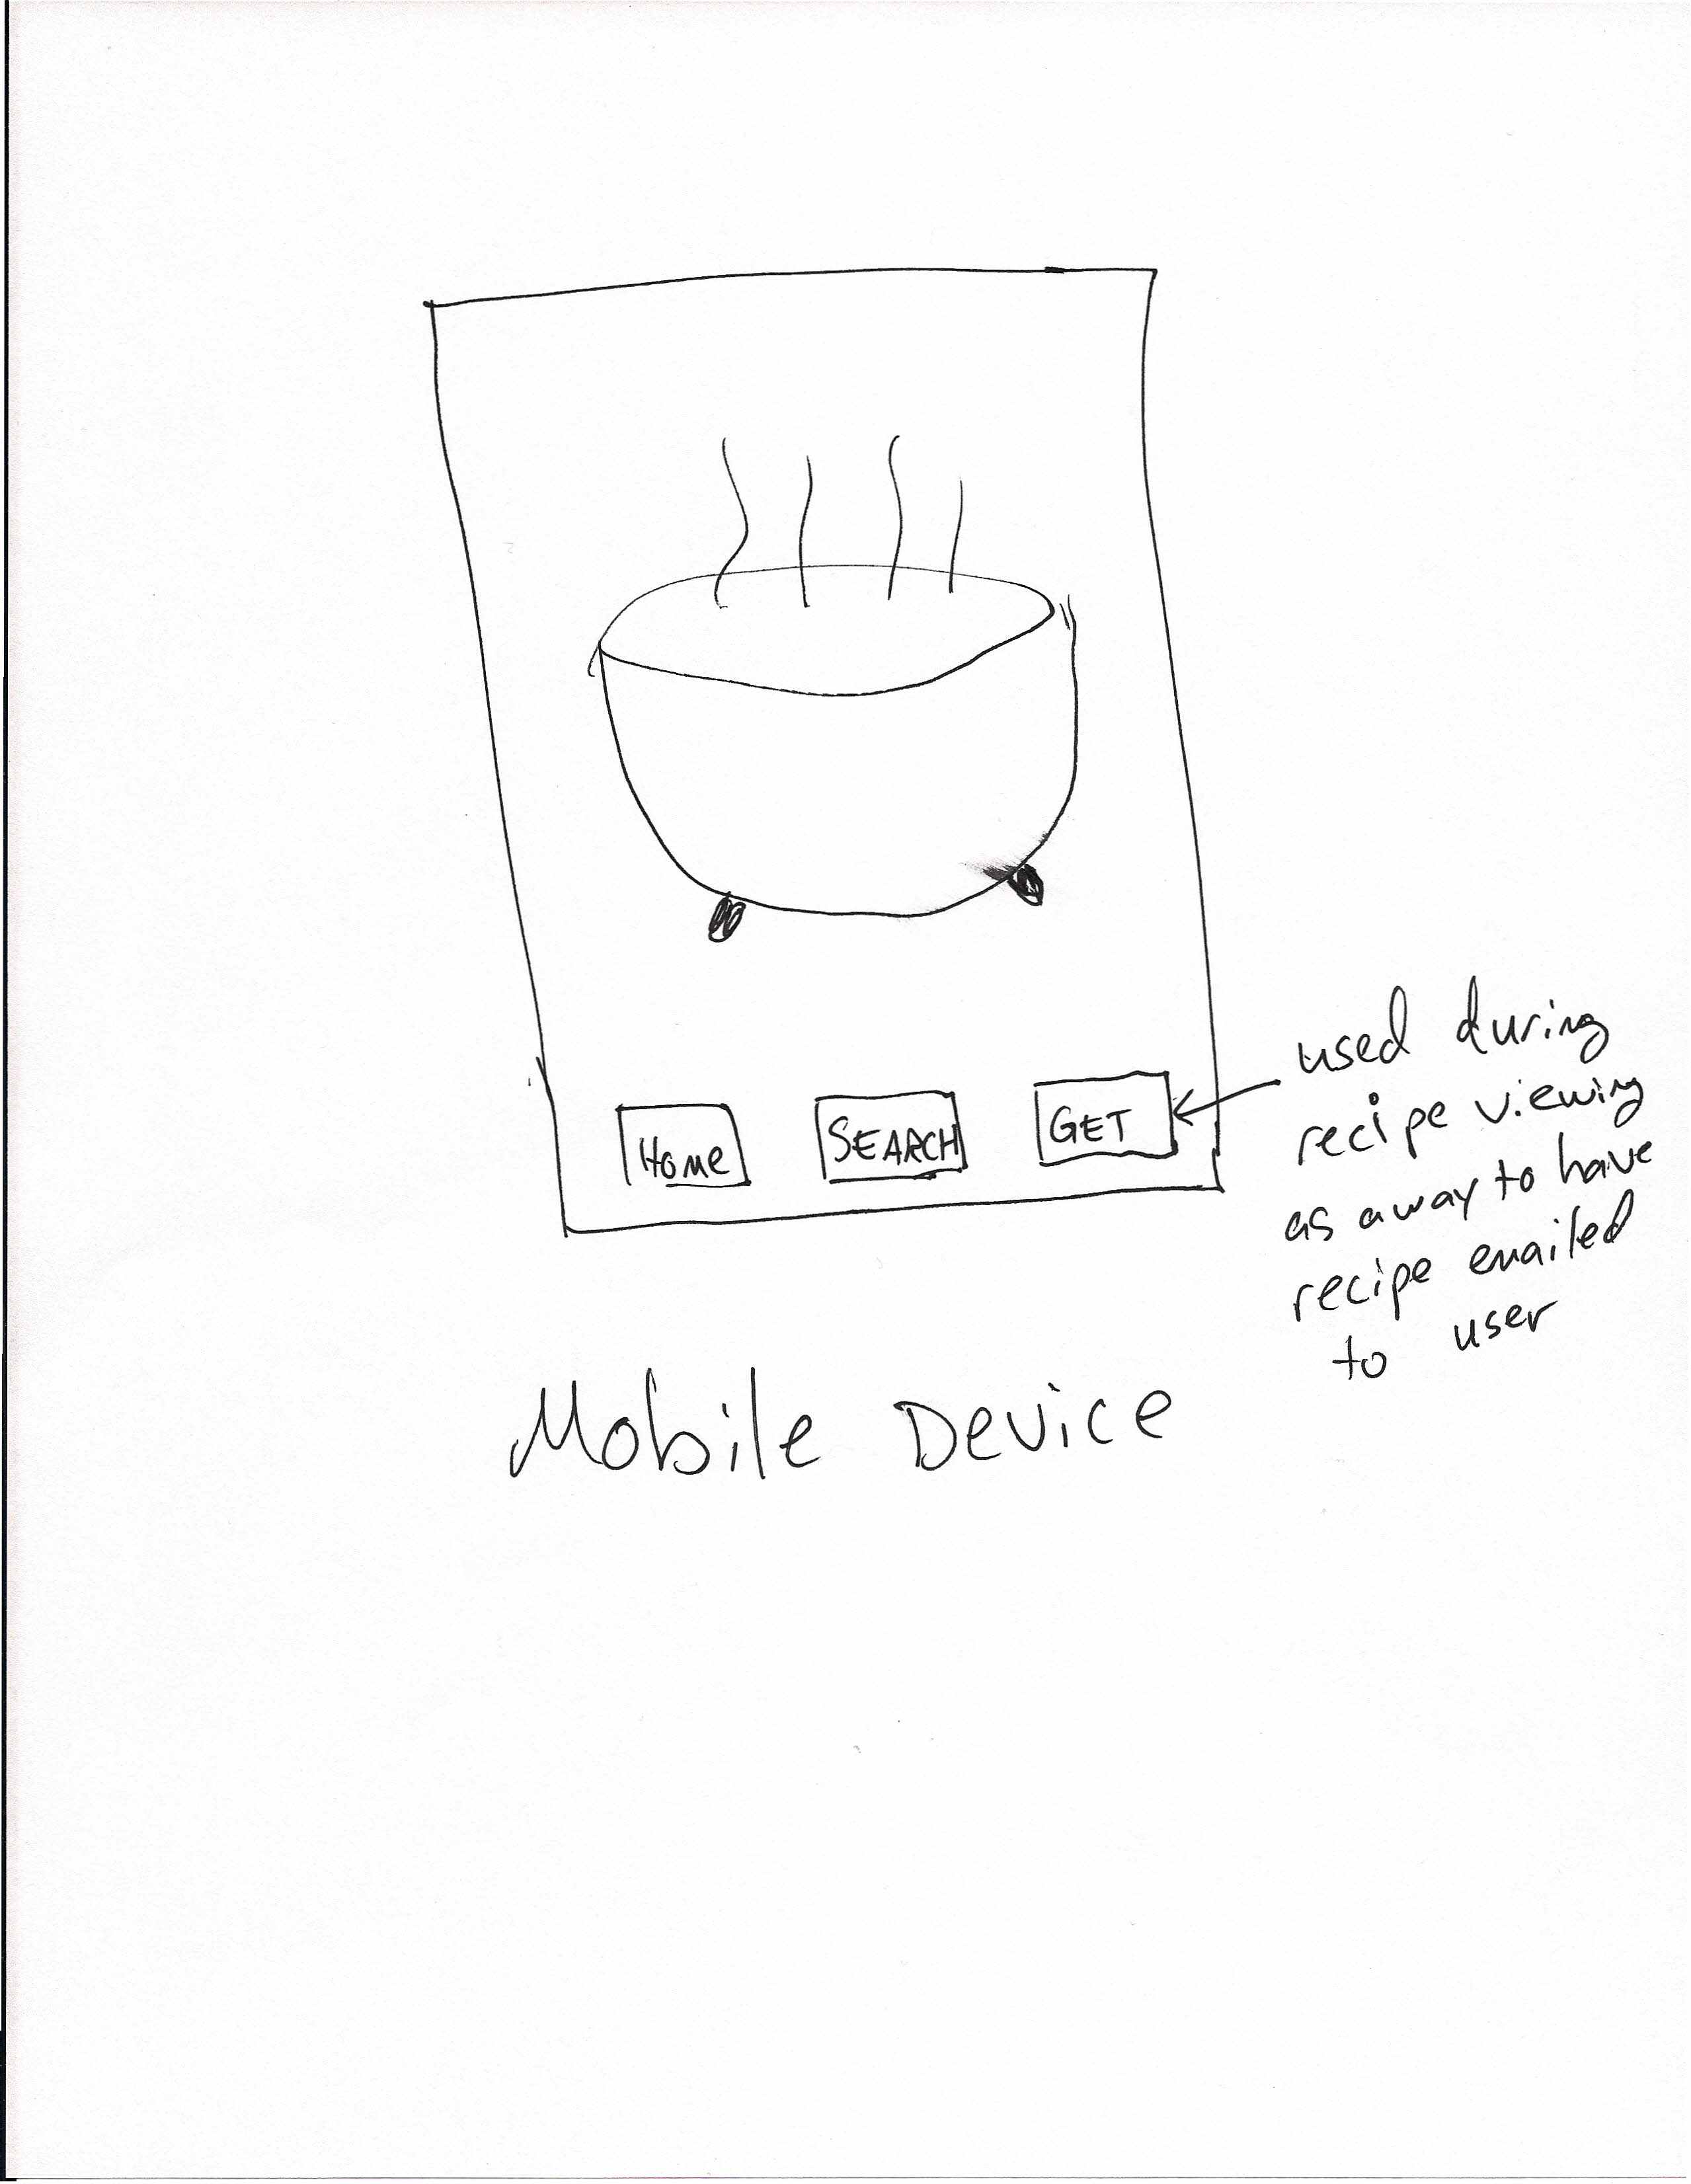 Home
SEARCH
GET
used during
recipe viewing
as away to have
recipe emailed
to user
Mobile Device